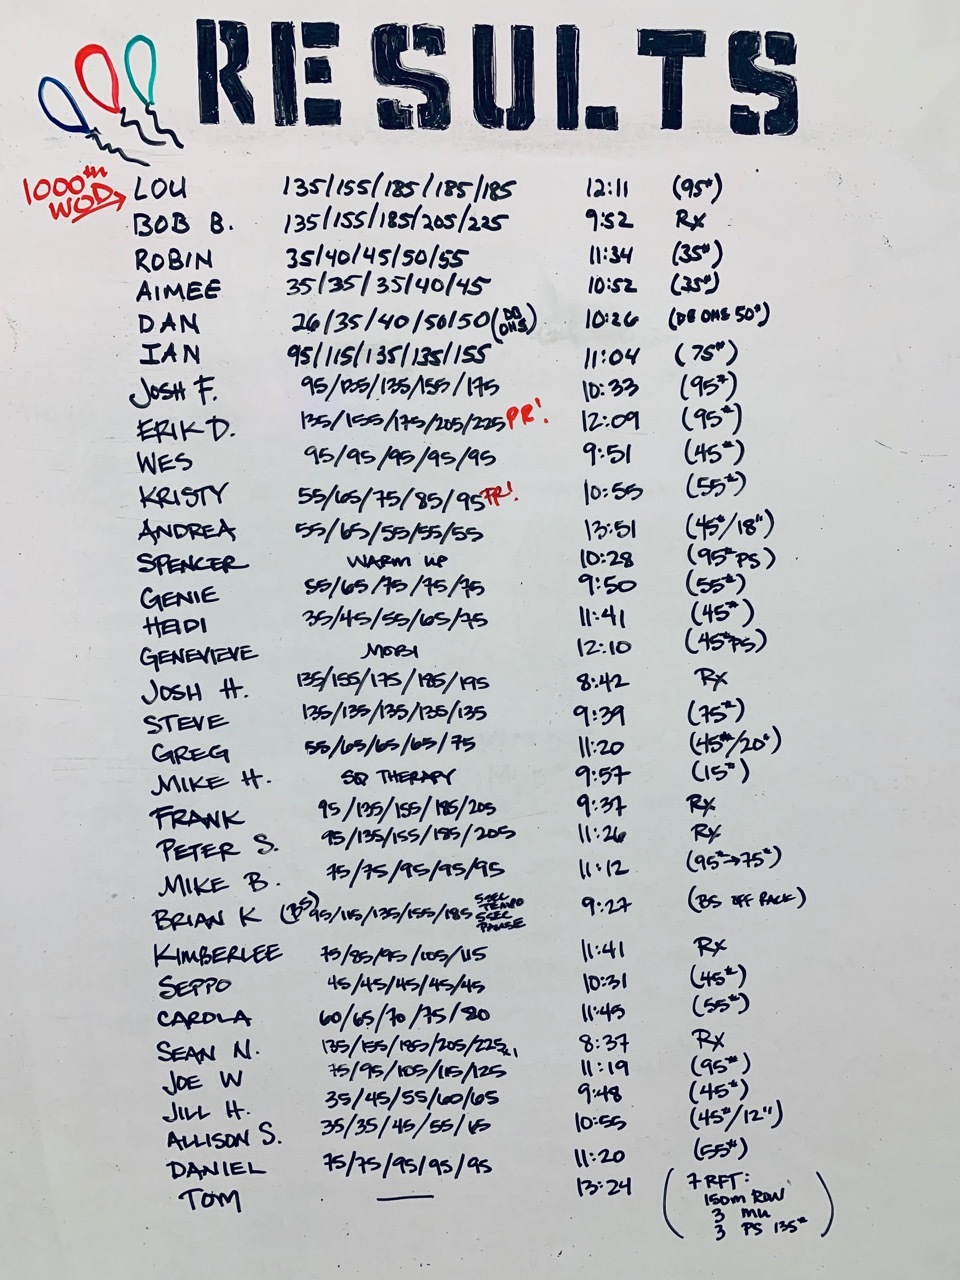 RESULTS
1000th WOD LOU 135/155/185/185/185 12:11 (95#)
BOB B. 135/155/185/205/225 9:52 Rx
ROBIN 35/40/45/50/55 11:34 (35#)
AIMEE 35/35/35/40/45 10:52 (35#)
DAN 26/35/40/50/50 (DB OHS) 10:26 (DB OHS 50#)
IAN 95/115/135/135/155 11:04 (75#)
JOSH F. 95/135/135/155/175 10:33 (95#)
ERIK D. 135/155/175/205/225 PR! 12:09 (95#)
WES 95/95/95/95/95 9:51 (45#)
KRISTY 55/65/75/85/95 PR! 10:55 (55#)
ANDREA 55/65/55/55/55 13:51 (45#/18")
SPENCER WARM UP 10:28 (95# PS)
GENIE 55/65/75/75/75 9:50 (55#)
HEIDI 35/45/55/65/75 11:41 (45#)
GENEVIEVE MOBI 12:10 (45# PS)
JOSH H. 135/155/175/185/195 8:42 Rx
STEVE 135/135/135/135/135 9:39 (75#)
GREG 55/65/65/65/75 11:20 (45#/20")
MIKE H. SQ THERAPY 9:57 (15#)
FRANK 95/135/155/185/205 9:37 Rx
PETER S. 95/135/155/185/205 11:26 Rx
MIKE B. 75/75/95/95/95 11:12 (95#→75#)
BRIAN K (BS) 95/115/135/155/185 5 SEC TEMPO 5 SEC PAUSE 9:27 (BS OFF RACK)
KIMBERLEE 75/85/95/105/115 11:41 Rx
SEPPO 45/45/45/45/45 10:31 (45#)
CAROLA 60/65/70/75/80 11:45 (55#)
SEAN N. 135/155/185/205/225x1 8:37 Rx
JOE W 75/95/105/115/125 11:19 (95#)
JILL H. 35/45/55/60/65 9:48 (45#)
ALLISON S. 35/35/45/55/65 10:55 (45#/12")
DANIEL 75/75/95/95/95 11:20 (55#)
TOM — 13:24 (7 RFT:
150m ROW
3 MU
3 PS 135#)